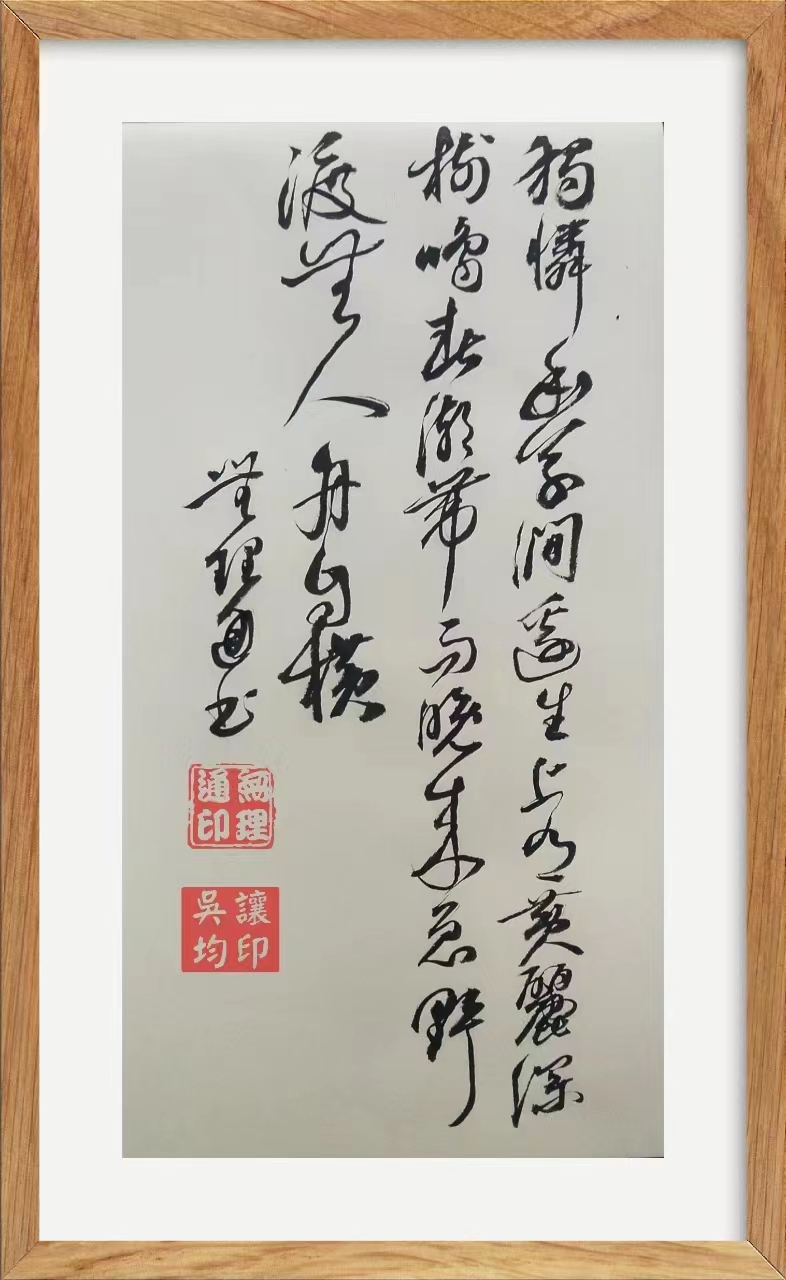 獨憐幽草澗邊生上有黃麗深
樹鳴春潮帶雨晚來急野
渡無人舟自橫
無理通书
無理通印
吳均讓印